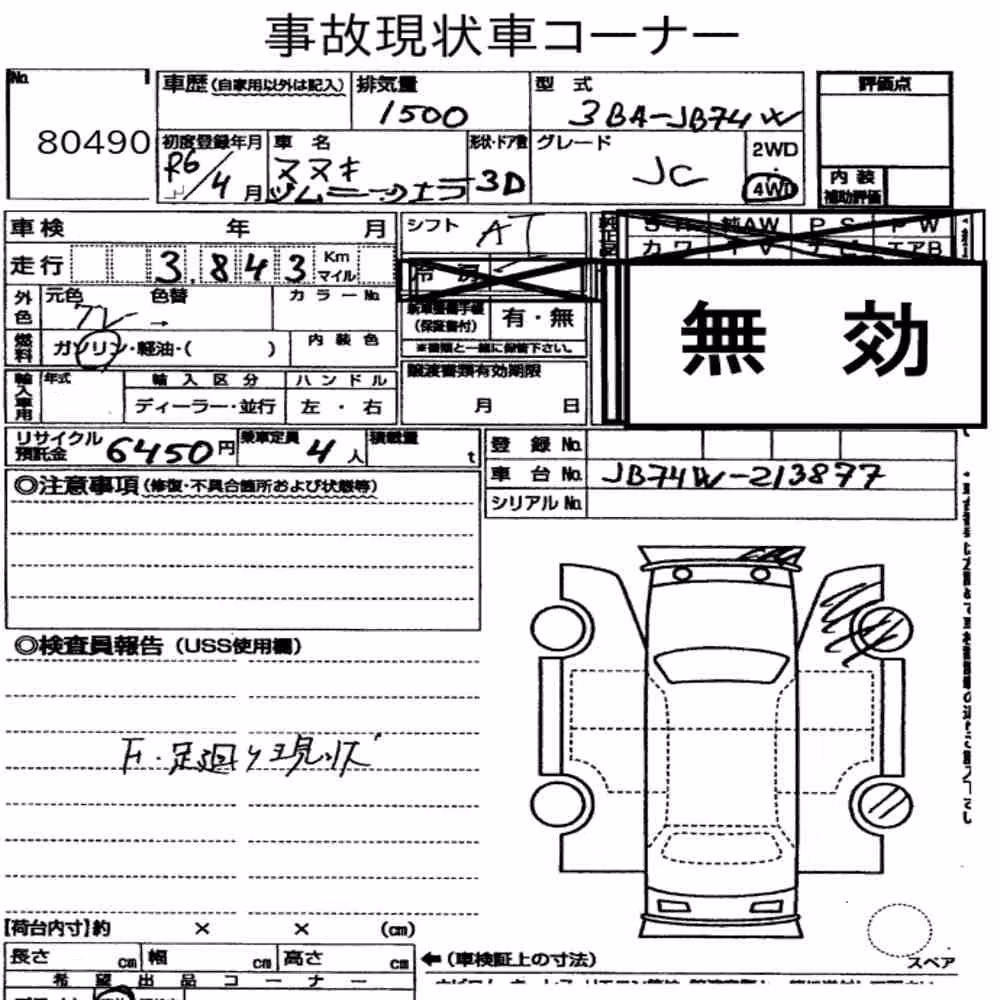 事故現状車コーナー
No. 80490
車歴(自家用以外は記入)
排気量 1500
型式 3BA-JB74W
評価点
初度登録年月 R6/4月
車名 スズキ
形状・ドア数 3D
グレード JC
2WD
4WD
内装
補助評価
車検 年 月
シフト AT
純AW PS PW
カワ TV エアB
走行 3,843 Km マイル
冷房
外色 元色 色替 カラーNo.
グレー →
(保証書付) 有・無
※書類と一緒に保管下さい。
無効
燃料 ガソリン・軽油・( )
内装色
輸入車用 年式 輸入区分 ハンドル
ディーラー・並行 左・右
譲渡書類有効期限
月 日
リサイクル預託金 6450円
乗車定員 4人
積載量 t
登録No.
車台No. JB74W-213877
シリアルNo.
◎注意事項(修復・不具合箇所および状態等)
◎検査員報告(USS使用欄)
下・足廻り現状
【荷台内寸】約 × × (cm)
長さ cm 幅 cm 高さ cm
←(車検証上の寸法)
スペア
希望出品コーナー